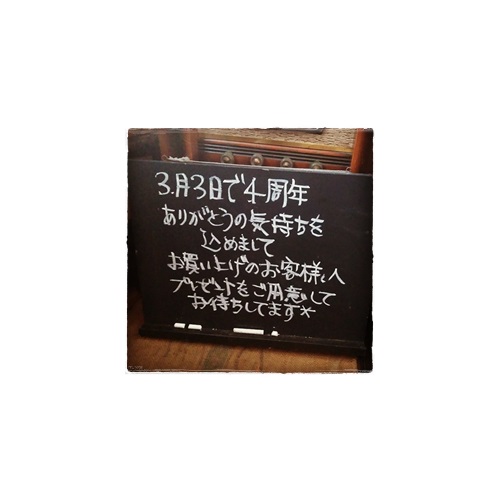 3月3日で4周年
ありがとうの気持ちを
込めまして
お買い上げのお客様に
プレゼントをご用意して
お待ちしてます*